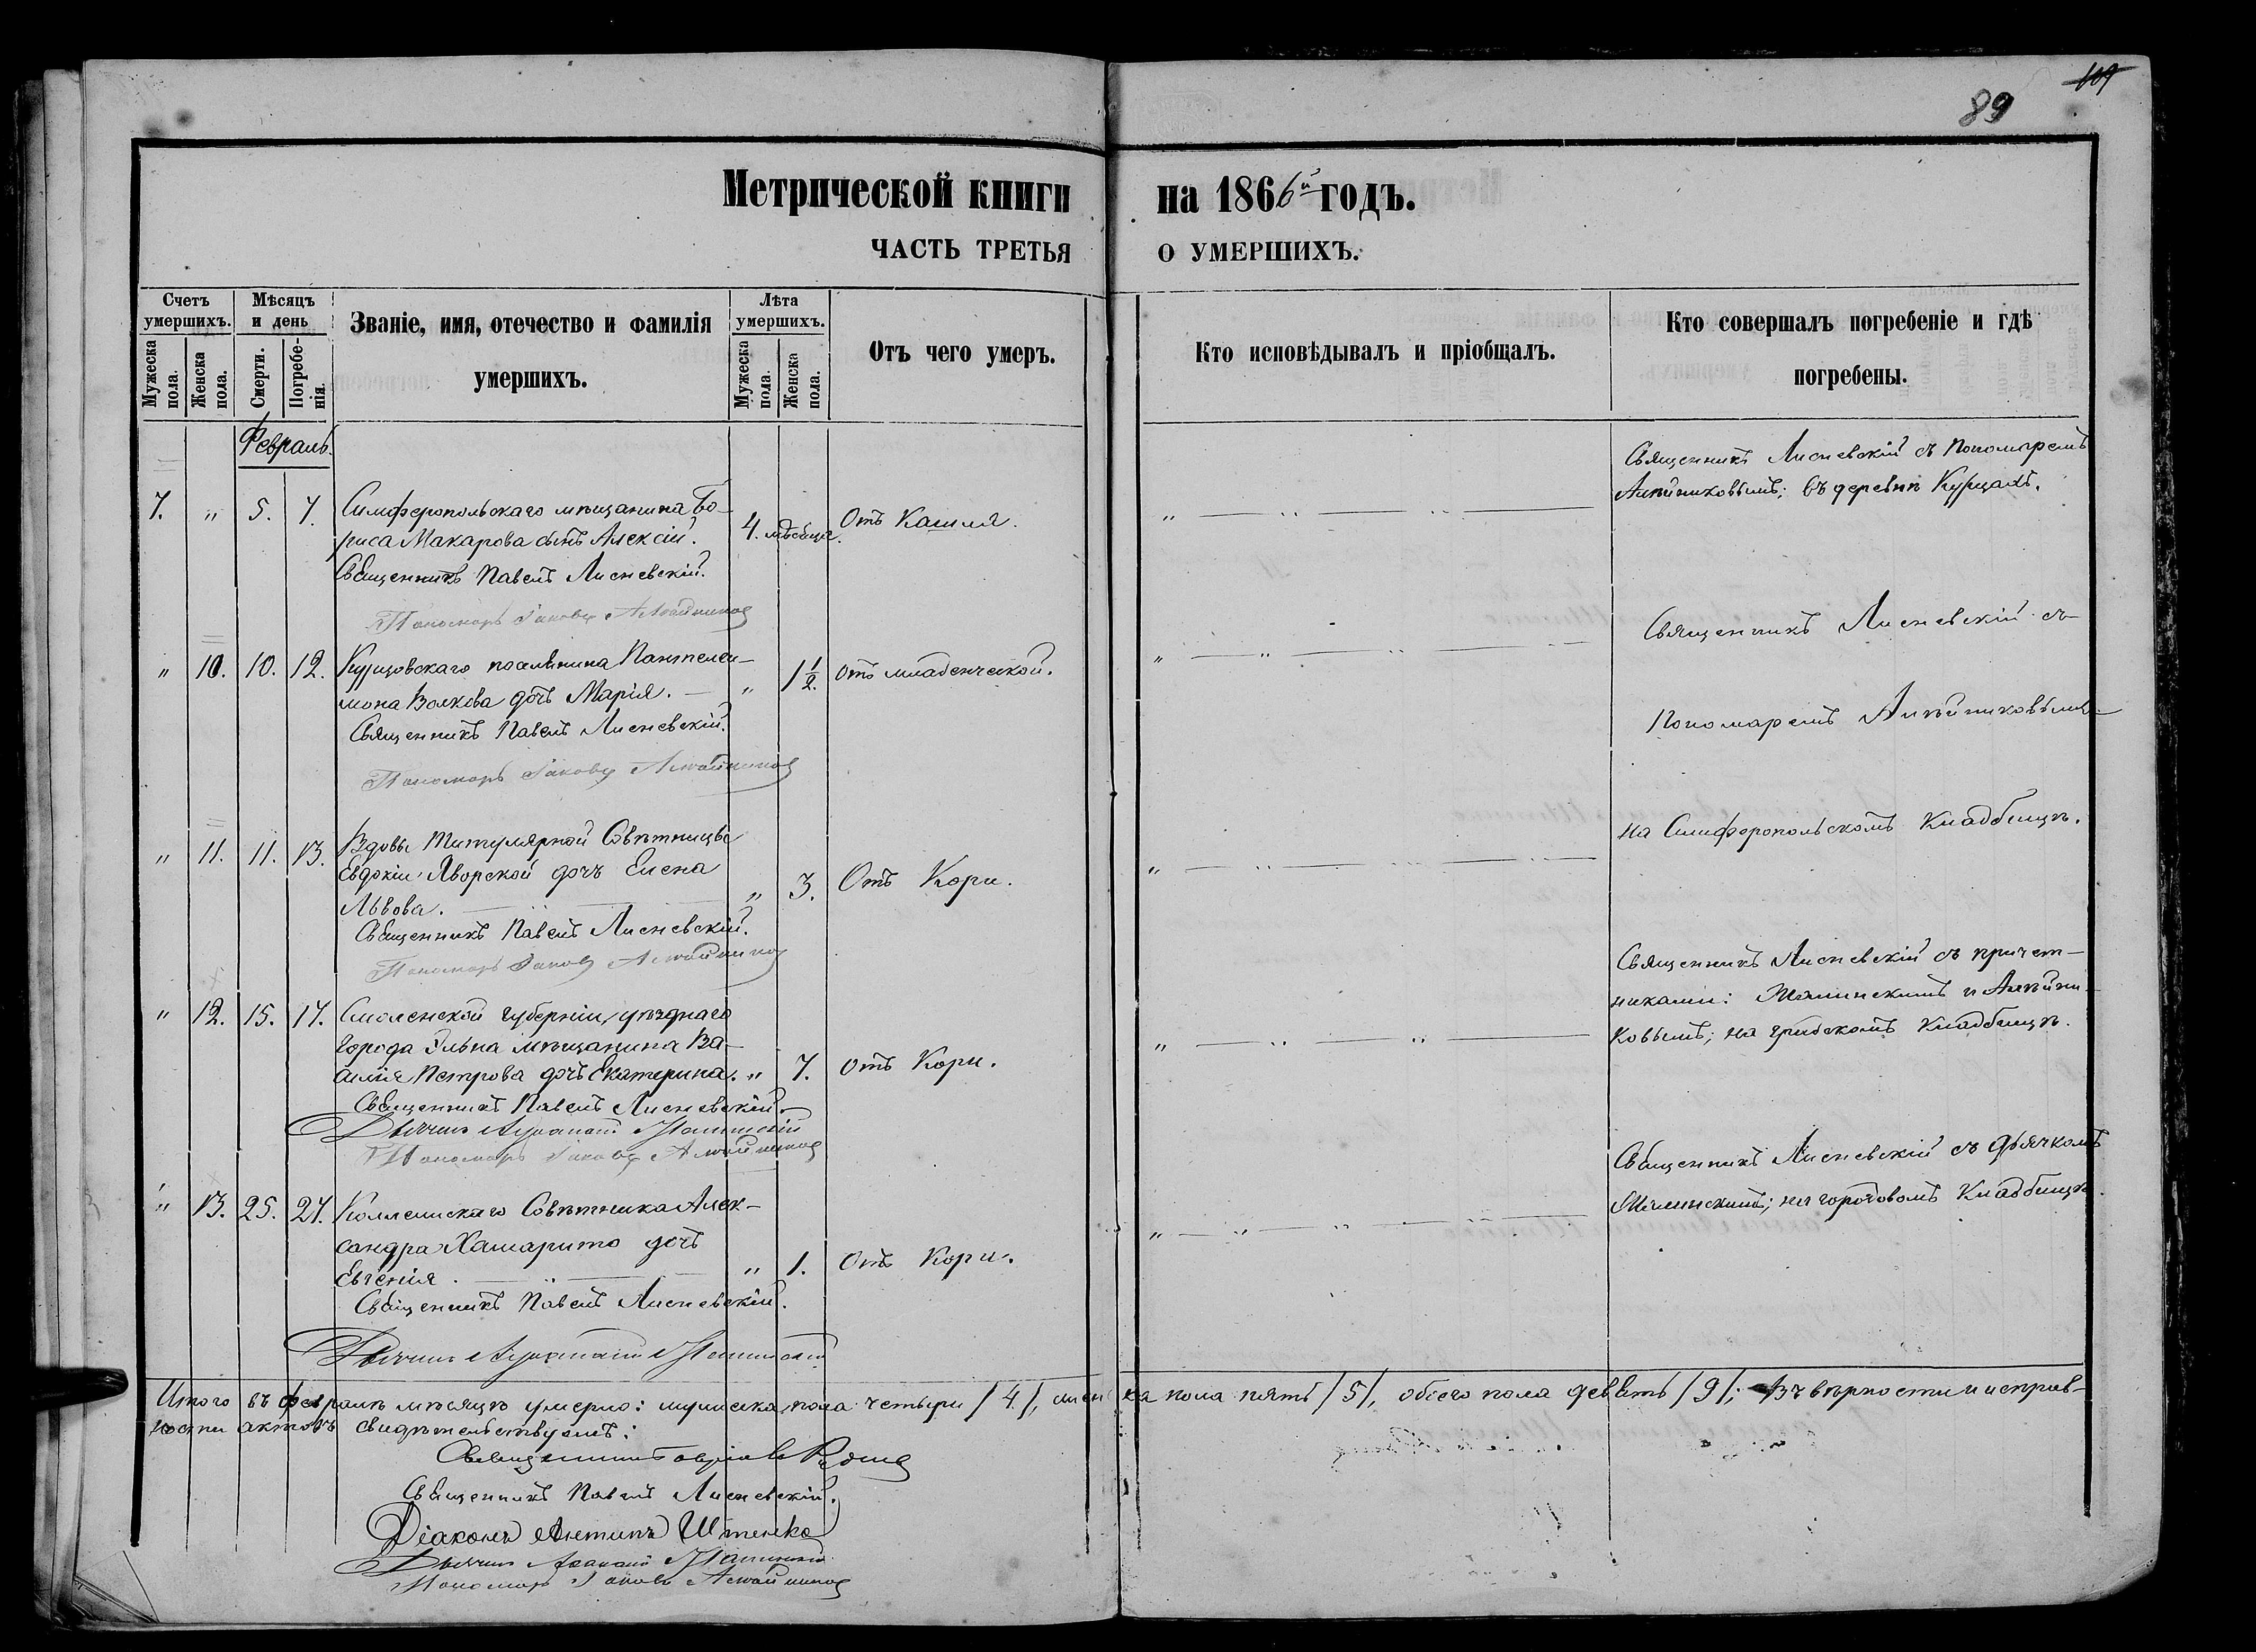 109
89
Метрической книги на 1866й годъ.
ЧАСТЬ ТРЕТЬЯ О УМЕРШИХЪ.
Счетъ умершихъ.
Мужеска пола.
Женска пола.
Мѣсяцъ и день
Смерти.
Погребенія.
Званіе, имя, отечество и фамилія
умершихъ.
Лѣта умершихъ.
Мужеска пола.
Женска пола.
Отъ чего умеръ.
Кто исповѣдывалъ и пріобщалъ.
Кто совершалъ погребеніе и гдѣ
погребены.
Февраль.
7. " 5. 7. Симферопольскаго мѣщанина Бо-
риса Макарова сынъ Алексій. 4. мѣсяца. Отъ Кашля.
Священникъ Павелъ Лисневскій.
Пономарь Іаковъ
Священникъ Лисневскій съ Пономаремъ
въ деревнѣ Курцахъ.
" 10. 10. 12. Курцовскаго поселянина Пантелеи-
мона Волкова дочь Марія. " 1 1/2. Отъ младенческой.
Священникъ Павелъ Лисневскій.
Пономарь Іаковъ
Священникъ Лисневскій съ
Пономаремъ
на Симферопольскомъ Кладбищѣ.
" 11. 11. 13. Вдовы Титулярной Совѣтницы
Евдокіи Яворской дочь Елена
Львова. " 3. Отъ Кори.
Священникъ Павелъ Лисневскій.
Пономарь Іаковъ
" 12. 15. 17. Смоленской губерніи, уѣзднаго
города Ельна мѣщанина Ва-
силія Петрова дочь Екатерина. " 7. Отъ Кори.
Священникъ Павелъ Лисневскій.
Дьячекъ
Пономарь Іаковъ
Священникъ Лисневскій съ причет-
никами:
на градскомъ Кладбищѣ.
" 13. 25. 27. Коллежскаго Совѣтника Алек-
сандра Хамарито дочь
Евгенія. " 1. Отъ Кори.
Священникъ Павелъ Лисневскій.
Дьячекъ
Священникъ Лисневскій съ дьячкомъ
на городовомъ Кладбищѣ.
Итого въ февралѣ мѣсяцѣ умерло: мужеска пола четыри /4/, женска пола пять /5/, обоего пола девять /9/; Въ вѣрности и исправ-
ности актовъ свидѣтельствуемъ:
Священникъ
Священникъ Павелъ Лисневскій.
Діаконъ Антипъ Штенко
Дьячекъ
Пономарь Іаковъ